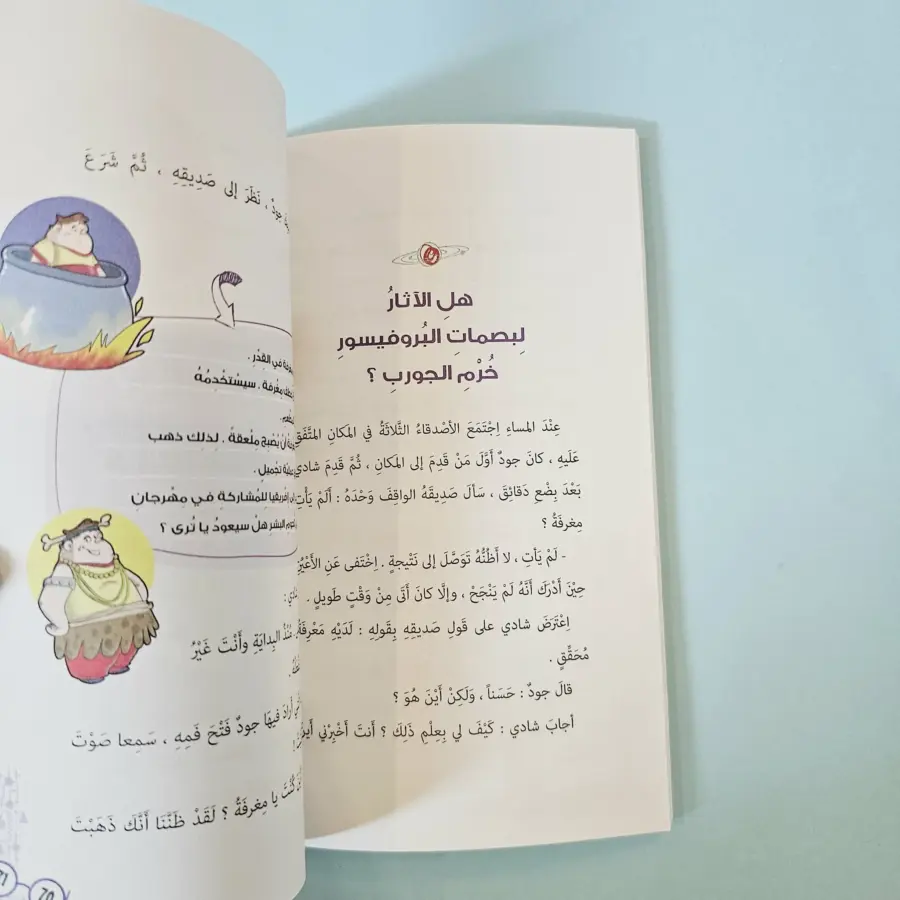 هلِ الآثارُ
لِبصماتِ البُروفيسورِ
خُرْمِ الجوربِ ؟
عِنْدَ المساءِ اِجْتَمَعَ الأصْدقاءُ الثَّلاثَةُ في المَكانِ المتَّفَقِ
عَلَيهِ ، كانَ جودٌ أَوَّلَ مَنْ قَدِمَ إلى المَكانِ ، ثُمَّ قَدِمَ شادي
بَعْدَ بِضْعِ دَقائِقَ ، سَألَ صَديقَهُ الواقِفَ وَحْدَهُ : أَلَمْ يَأْتِ
مِغرفَةُ ؟
- لَمْ يَأتِ ، لا أَظُنُّهُ تَوَصَّلَ إلى نَتْيجةٍ . اِخْتَفى عَنِ الأَعْيُنِ
حِيْنَ أَدْرَكَ أَنَّهُ لَمْ يَنْجَحْ ، وإلّا كانَ أَتى مِنْ وَقْتٍ طَويلٍ .
اِعْتَرَضَ شادي على قَولِ صَديقِهِ بِقَولِهِ : لَدَيْهِ مَعْرِفَةٌ
مُحَقَّقٍ .
قالَ جودٌ : حَسَناً ، وَلَكِنْ أَيْنَ هُوَ ؟
أجابَ شادي : كَيْفَ لي بِعِلْمِ ذَلِكَ ؟ أَنتَ أَخْبِرْني أَينَ
جودٌ ، نَظَرَ إلى صَدِيقِهِ ، ثُمَّ شَرَعَ
في القِدْرِ .
مِغْرفة . سيسْتخْدِمُهُ
أنْ يُصْبِحَ مِلْعقةً . لذلِكَ ذهب
تجْميلٍ .
أفْريقيا للمُشاركةِ في مِهْرجانِ
البشرِ هلْ سيعودُ يا تُرى ؟
مُنْذُ البِدايَةِ وأَنْتَ غَيْرُ
أرادَ فيهَا جودٌ فَتْحَ فَمِهِ ، سَمِعا صَوْتَ
كُنْتَ يا مِغرفَةُ ؟ لَقَدْ ظَنَّنا أَنَّكَ ذَهَبْتَ
70
71